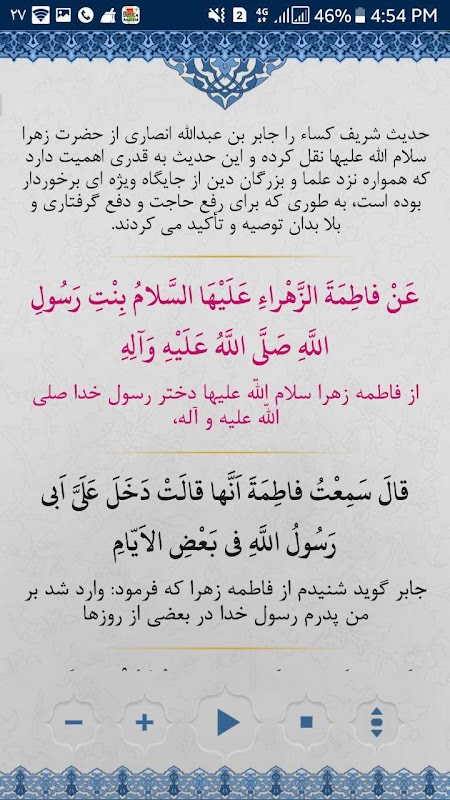 ۲۷ 2 4G 46% 4:54 PM
حدیث شریف کساء را جابر بن عبدالله انصاری از حضرت زهرا
سلام الله علیها نقل کرده و این حدیث به قدری اهمیت دارد
که همواره نزد علما و بزرگان دین از جایگاه ویژه ای برخوردار
بوده است، به طوری که برای رفع حاجت و دفع گرفتاری و
بلا بدان توصیه و تأکید می کردند.
عَنْ فاطِمَةَ الزَّهْراءِ عَلَيْهَا السَّلامُ بِنْتِ رَسُولِ
اللَّهِ صَلَّى اللَّهُ عَلَيْهِ وَآلِهِ
از فاطمه زهرا سلام الله علیها دختر رسول خدا صلی
الله علیه و آله،
قالَ سَمِعْتُ فاطِمَةَ اَنَّها قالَتْ دَخَلَ عَلَىَّ اَبى
رَسُولُ اللَّهِ فى بَعْضِ الاَيّامِ
جابر گوید شنیدم از فاطمه زهرا که فرمود: وارد شد بر
من پدرم رسول خدا در بعضی از روزها